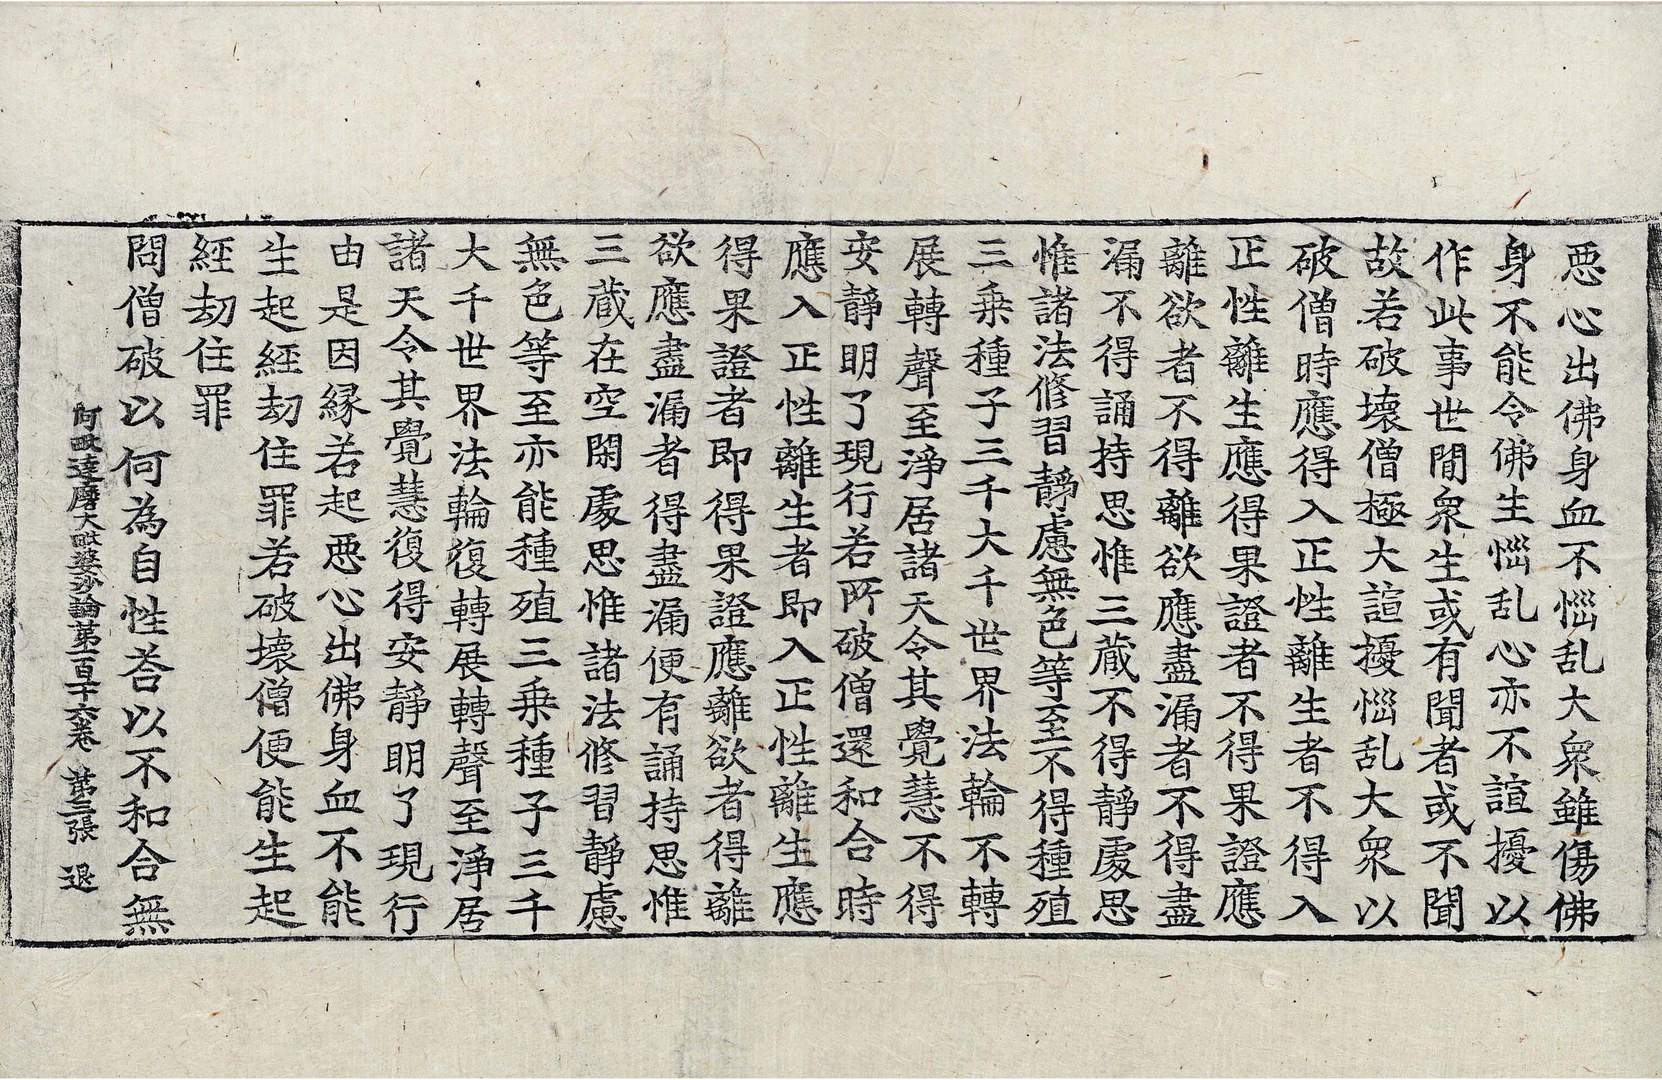 惡心出佛身血不惱乱大衆雖傷佛
身不能令佛生惱乱心亦不諠擾以
作此事世閒衆生或有聞者或不聞
故若破壞僧極大諠擾惱乱大衆以
破僧時應得入正性離生者不得入
正性離生應得果證者不得果證應
離欲者不得離欲應盡漏者不得盡
漏不得誦持思惟三藏不得靜處思
惟諸法修習靜慮無色等至不得種殖
三乗種子三千大千世界法輪不轉
展轉聲至淨居諸天令其覺慧不得
安靜明了現行若所破僧還和合時
應入正性離生者即入正性離生應
得果證者即得果證應離欲者得離
欲應盡漏者得盡漏便有誦持思惟
三藏在空閑處思惟諸法修習靜慮
無色等至亦能種殖三乗種子三千
大千世界法輪復轉展轉聲至淨居
諸天令其覺慧復得安靜明了現行
由是因縁若起惡心出佛身血不能
生起經劫住罪若破壞僧便能生起
經劫住罪
問僧破以何為自性荅以不和合無
阿毗達磨大毗婆沙論第一百十六卷　第三張　退